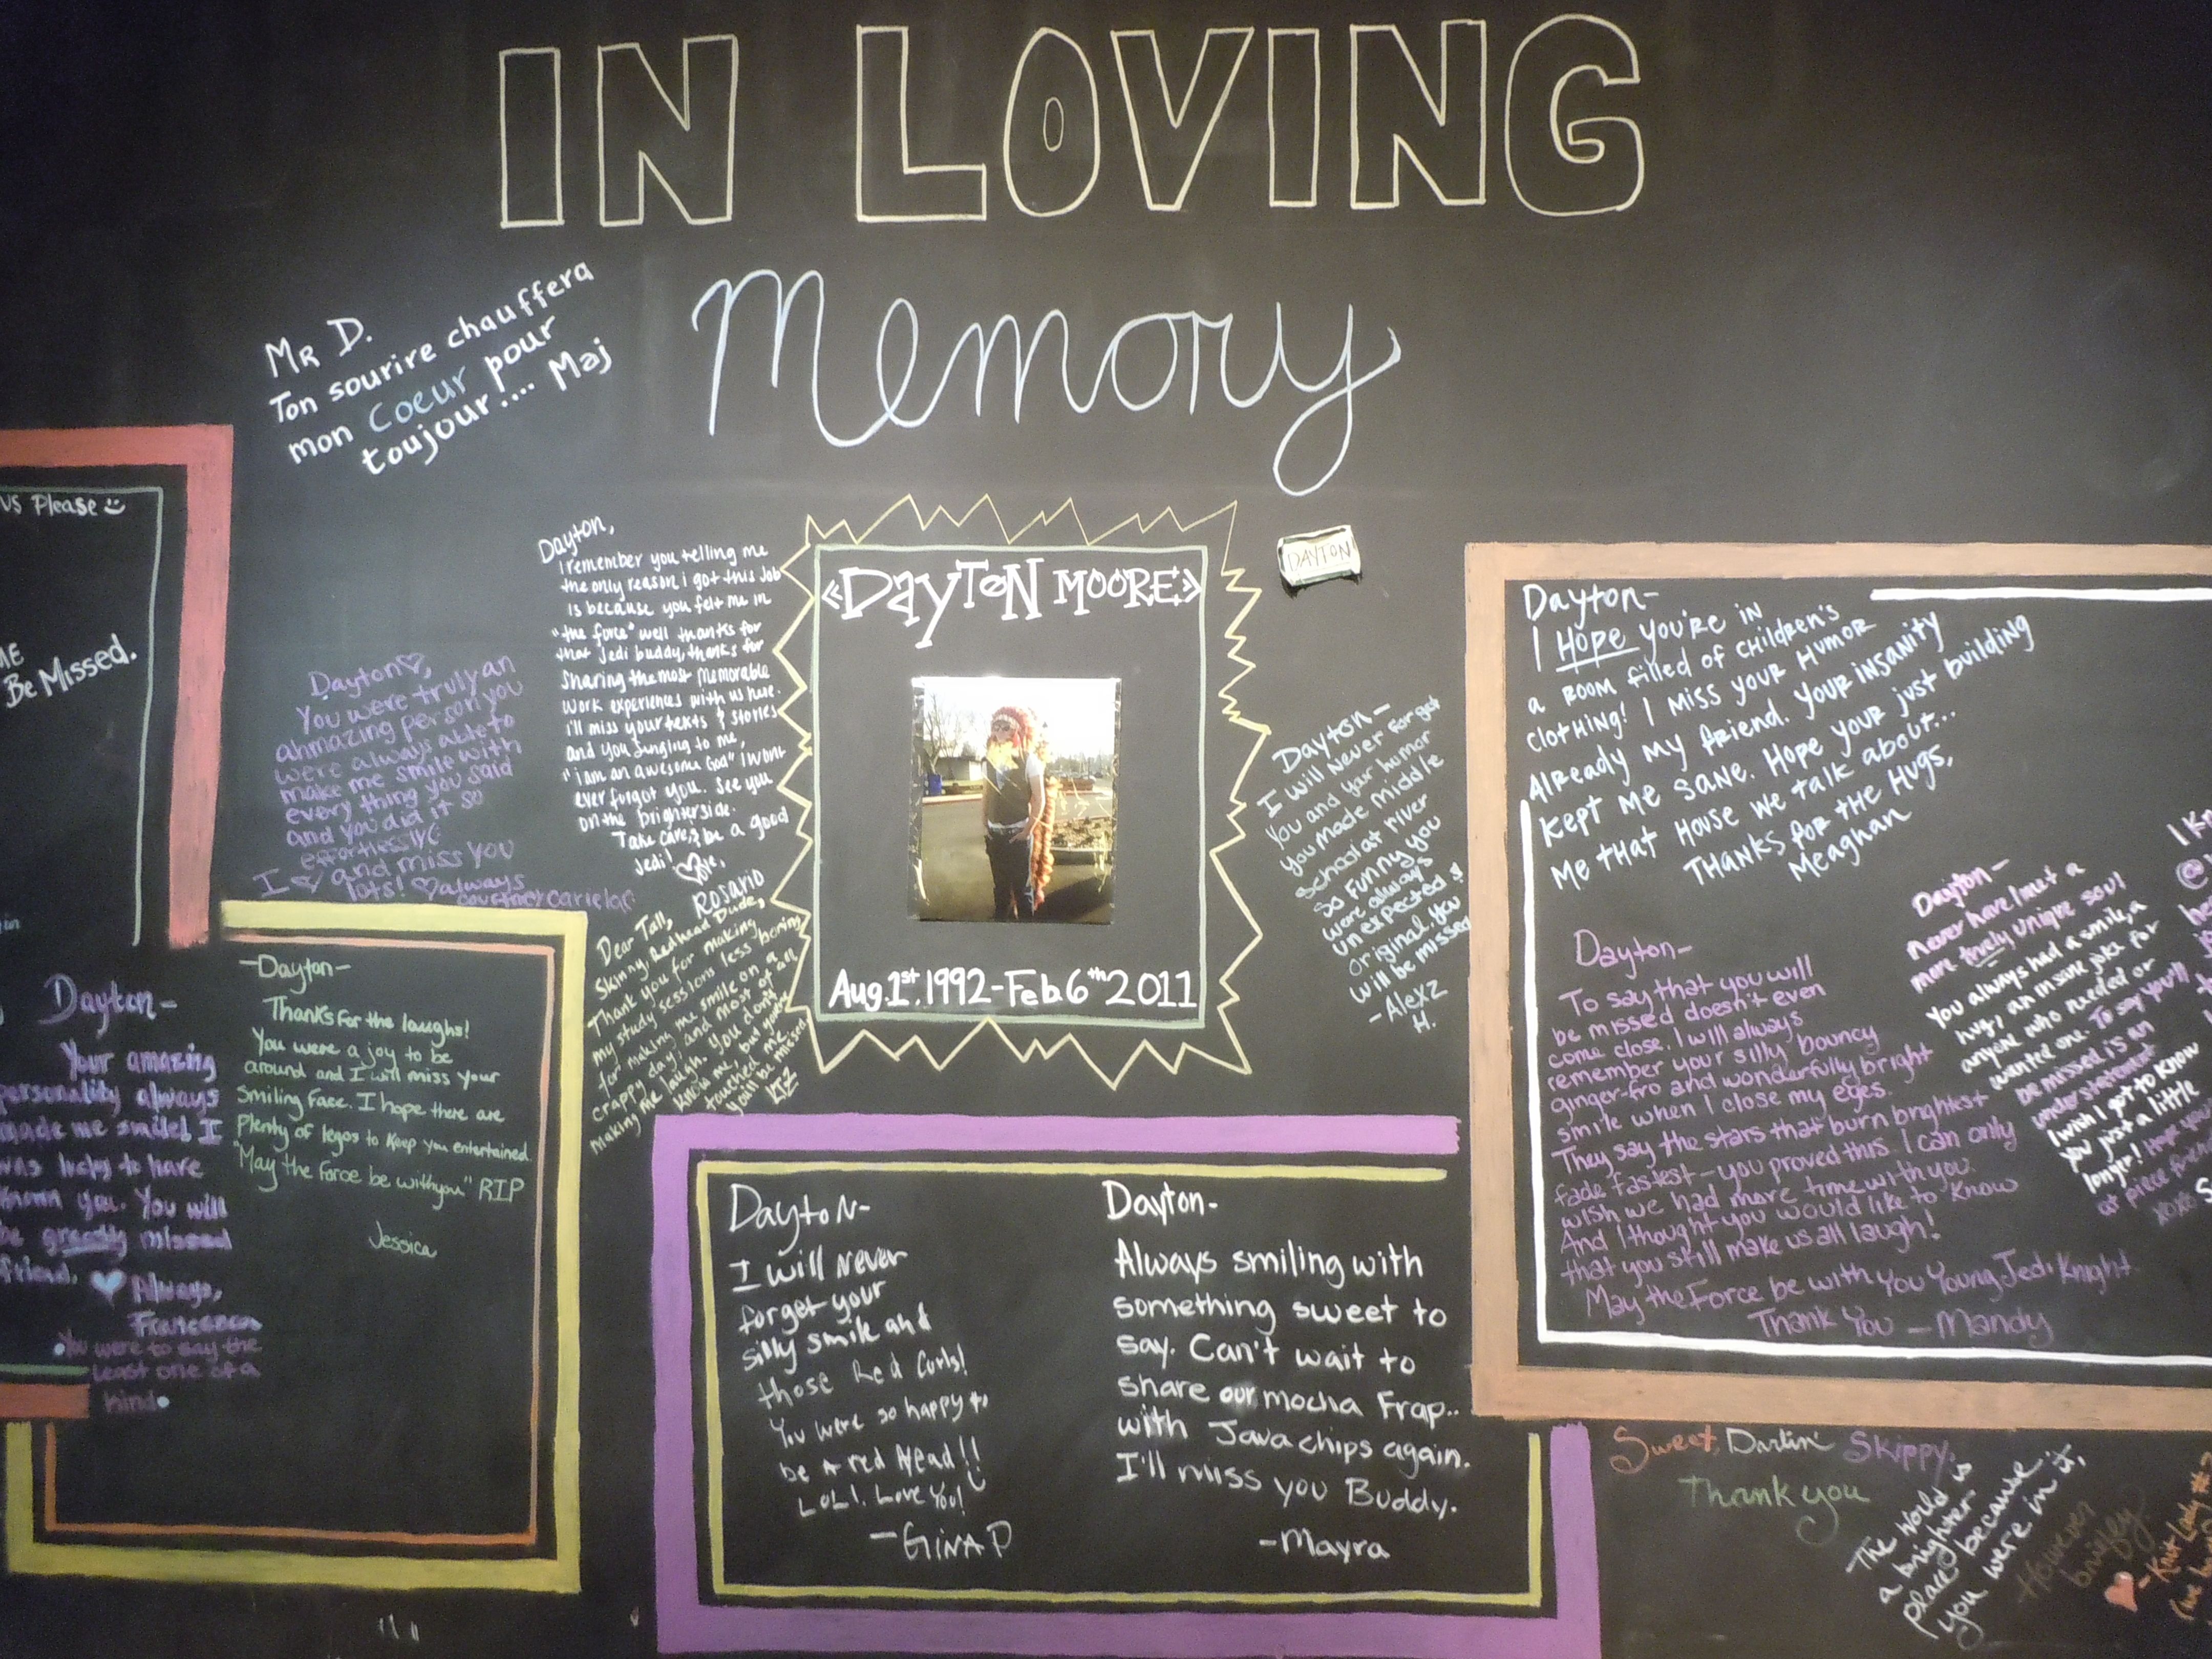 IN LOVING
Memory
MR D.
Ton sourire chauffera
mon Coeur pour
toujour.... Maj
VS Please
Be Missed.
Dayton♡,
You were truly an
ahmazing person you
were always able to
make me smile with
every thing you said
and you did it so
effortlessly
I ♡ and miss you
lots! ♡ always
Dayton,
I remember you telling me
the only reason i got this job
is because you felt me in
"the force" well thanks for
that Jedi buddy, thanks for
sharing the most memorable
work experiences with us here.
i'll miss your texts & stories
and you singing to me,
"i am an awesome God" I wont
ever forgot you. See you
on the brighterside.
Take care, & be a good
Jedi! Love,
Rosario
Dear Tall,
Skinny, Redhead Dude,
Thank you for making
my study sessions less boring
for making me smile on a
crappy day, and most of all
making me laugh. You don't
know me, but you've
touched me.
you'll be missed
KTZ
«DAYTON MOORE»
Aug. 1st, 1992-Feb. 6th 2011
DAYTON
Dayton-
I will Never forget
you and your humor
you made middle
school at river
so funny you
were always
unexpected &
original, you
will be missed
-Alexz
H.
Dayton-
I Hope you're in
a room filled of children's
clothing! I miss your humor
Already my friend. Your insanity
kept me sane. Hope your just building
me that house we talk about...
Thanks for the Hugs,
Meaghan
Dayton-
To say that you will
be missed doesn't even
come close. I will always
remember your silly bouncy
ginger-fro and wonderfully bright
smile when I close my eyes.
They say the stars that burn brightest
fade fastest-you proved this. I can only
wish we had more time with you.
And I thought you would like to know
that you still make us all laugh!
May the Force be with you Young Jedi Knight
Thank You -Mandy
Dayton-
never have I met a
more truely unique soul
You always had a smile, a
hug, an insane joke for
anyone who needed or
wanted one. To say you'll
be missed is an
understatement
I wish I got to know
you just a little
longer! Hope you
at piece
xoxo
Dayton-
Your amazing
personality always
made me smile! I
was lucky to have
known you. You will
be greatly missed
friend. ♡ Always,
Francesca
You were to say the
least one of a
kind
-Dayton-
Thanks for the laughs!
You were a joy to be
around and I will miss your
smiling face. I hope there are
plenty of legos to keep you entertained.
"May the Force be with you" RIP
Jessica
Dayton-
I will never
forget your
silly smile and
those Red Curls!
You were so happy to
be a red head!!
LOL!. Love You!
-GINA P
Dayton-
Always smiling with
something sweet to
say. Can't wait to
share our mocha Frap..
with Java chips again.
I'll miss you Buddy.
-Mayra
Sweet, Darlin' Skippy.
Thank you
The world is
a brighter
place because
you were in it,
However
briefly.